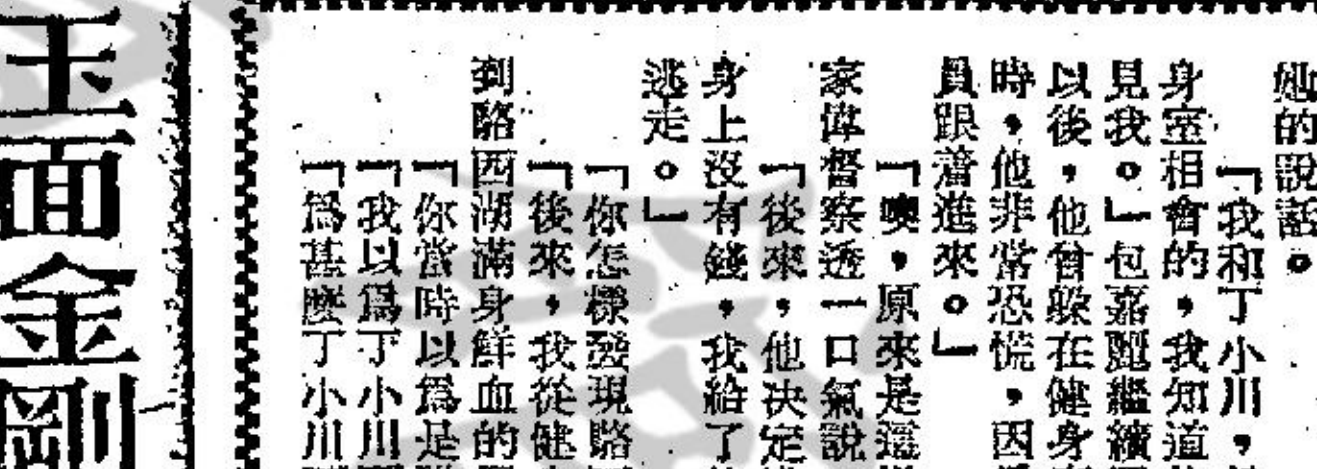 她的說話。
「我和丁小川，
身室相會的，我知道
見我。」包嘉麗繼續
以後，他曾躲在健身
時，他非常恐慌，因
員跟着進來。」
「噢，原來是這
家偉督察透一口氣說
「後來，他決定
身上沒有錢，我給了
逃走。」
「你怎樣發現駱
「後來，我從健
到駱西湖滿身鮮血的
「你當時以爲是
「我以爲丁小川
「爲甚麼丁小川
玉面金剛